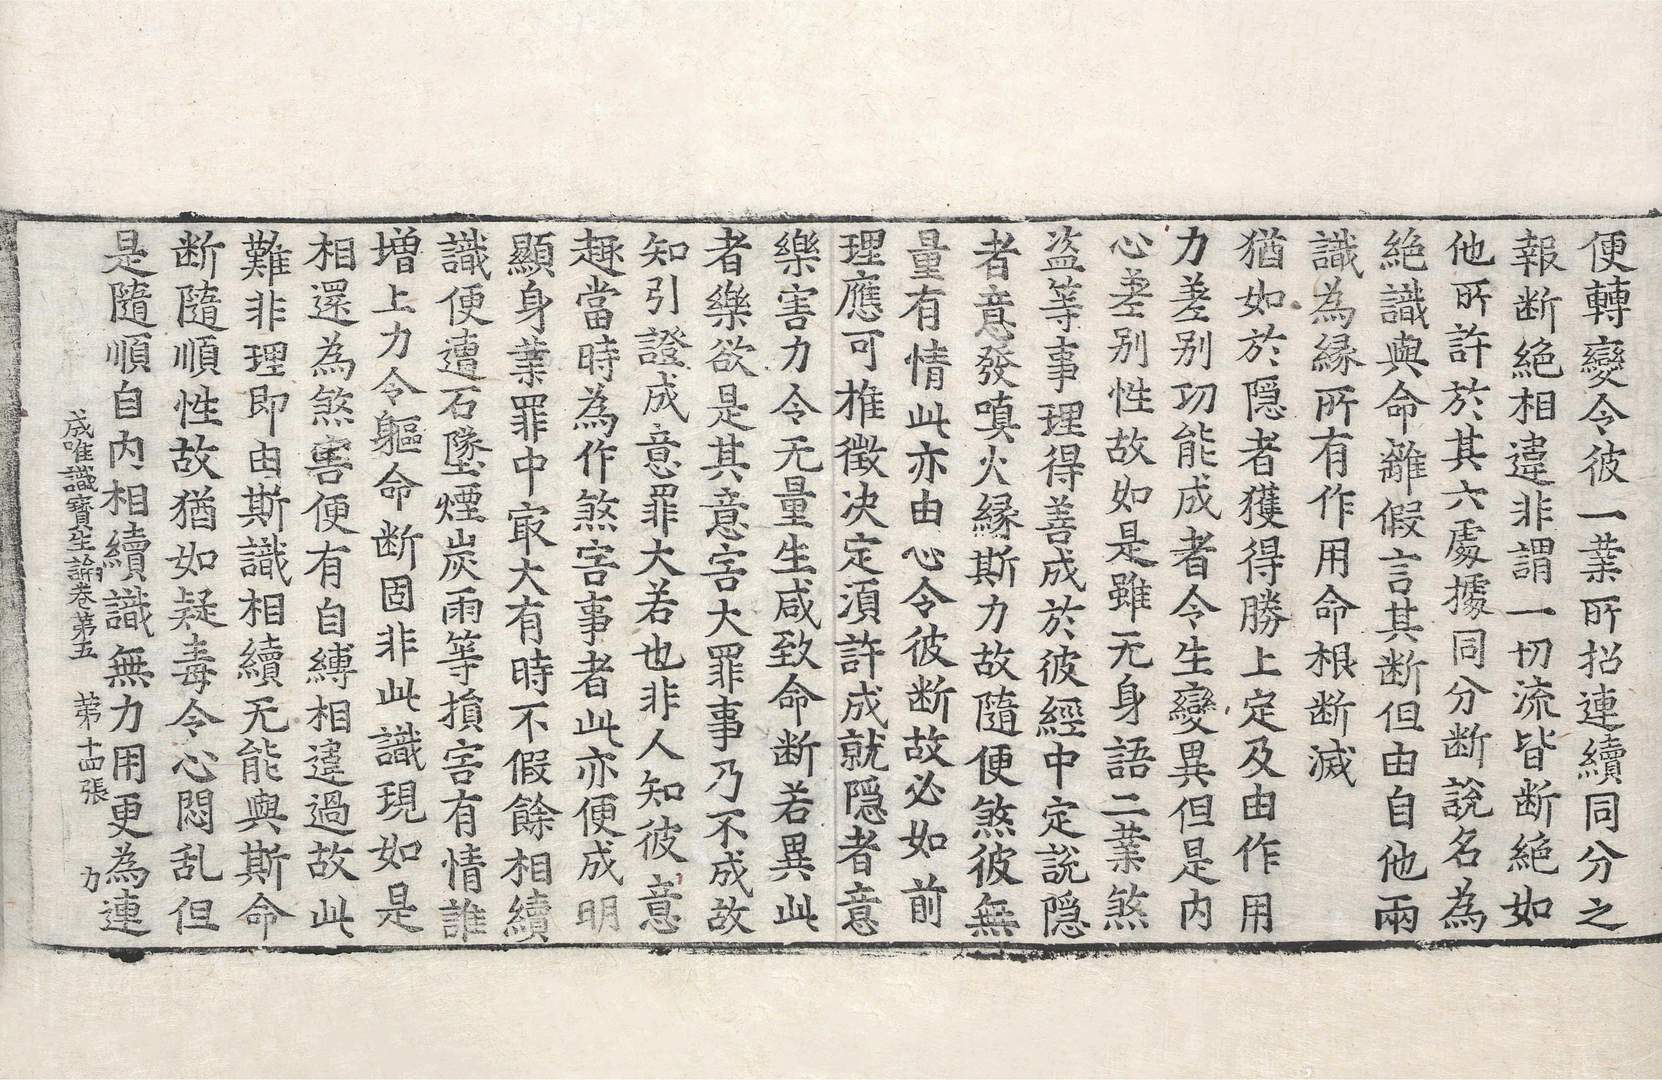 便轉變令彼一業所招連續同分之
報断絶相違非謂一切流皆断絶如
他所許於其六處據同分断說名為
絶識與命雖假言其断但由自他兩
識為緣所有作用命根断滅
猶如於隱者獲得勝上定及由作用
力差别功能成者令生變異但是内
心差别性故如是雖无身語二業煞
盗等事理得善成於彼經中定說隱
者意發嗔火緣斯力故隨便煞彼無
量有情此亦由心令彼断故必如前
理應可推徵决定湏許成就隱者意
樂害力令无量生咸致命断若異此
者樂欲是其意害大罪事乃不成故
知引證成意罪大若也非人知彼意
趣當時為作煞害事者此亦便成明
顯身業罪中㝡大有時不假餘相續
識便遭石墜煙炭雨等損害有情誰
增上力令軀命断固非此識現如是
相還為煞害便有自縛相違過故此
難非理即由斯識相續无能與斯命
断隨順性故猶如疑毒令心悶乱但
是隨順自内相續識無力用更為連
成唯識寶生論卷第五　第十四張　力